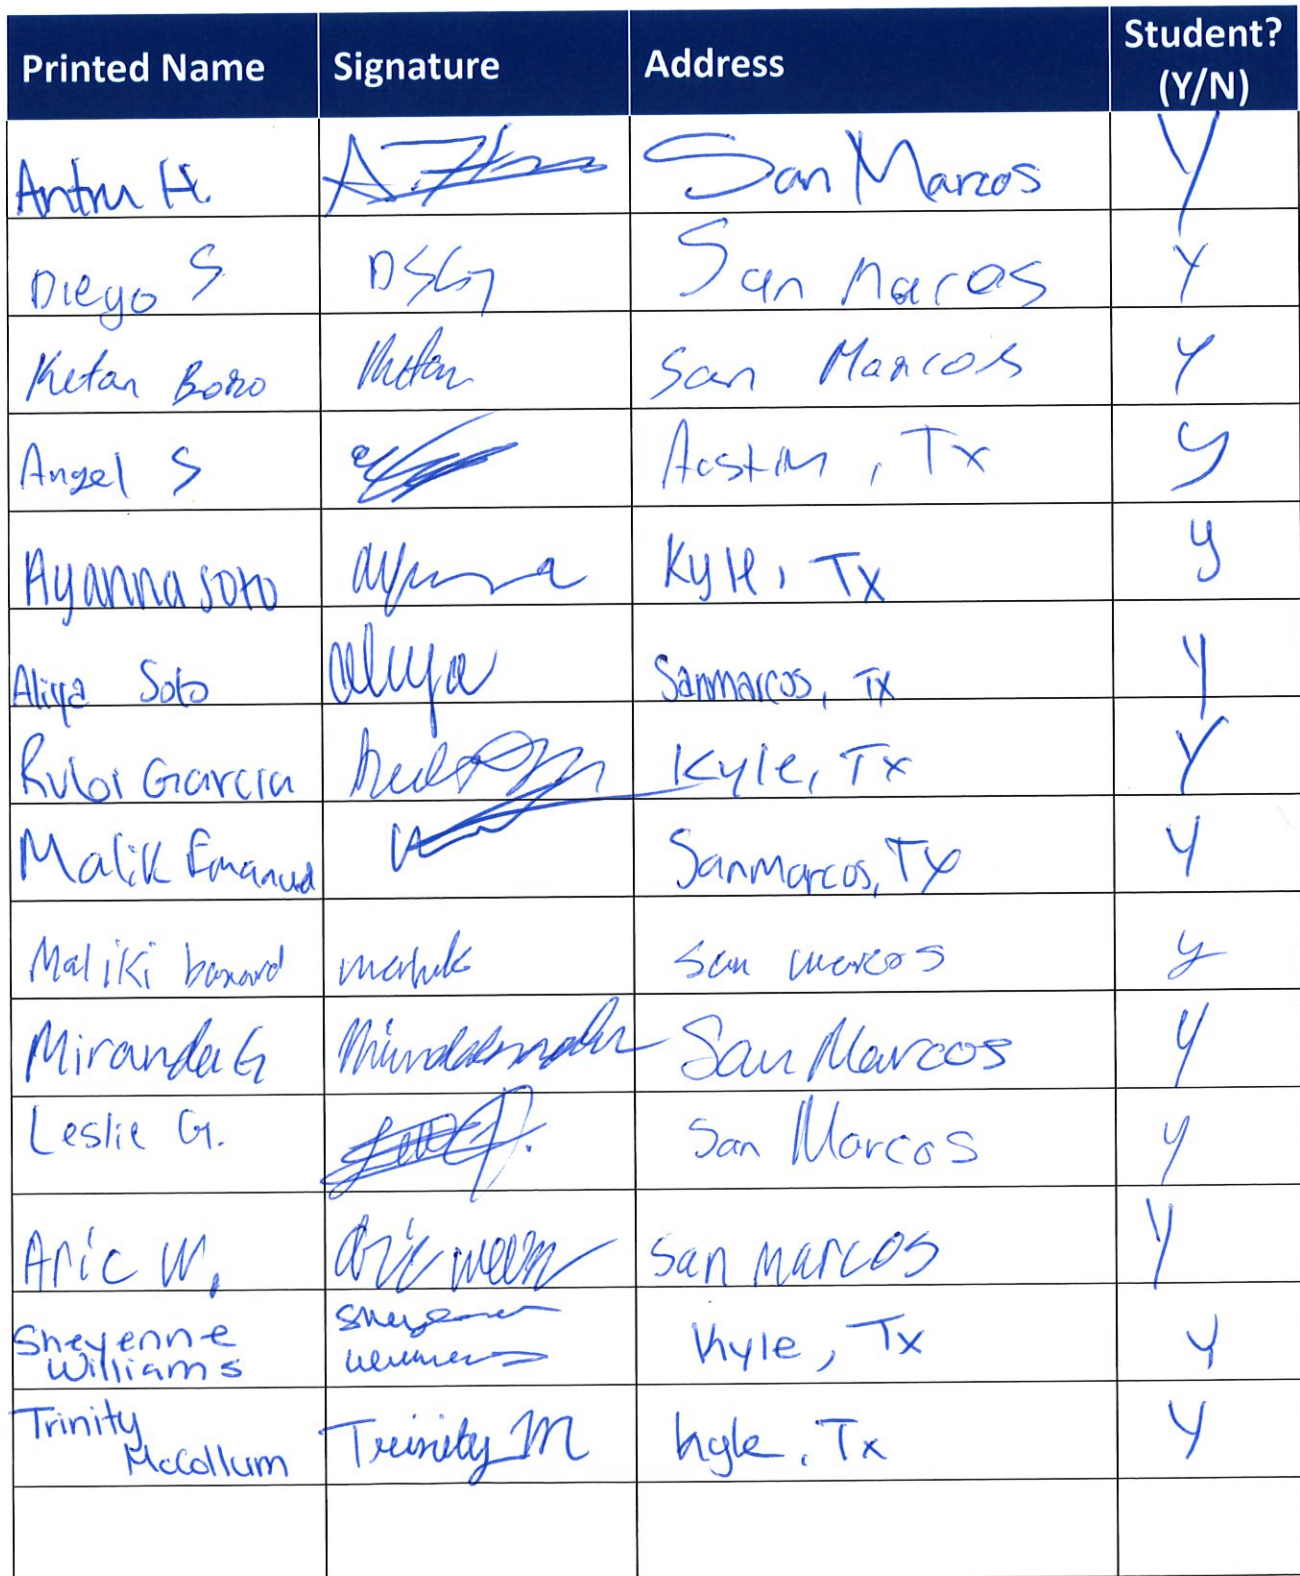 Printed Name Signature Address Student? (Y/N)
Antru H. San Marcos Y
Diego S DSG San Marcos Y
Ketan Boro Ketan San Marcos Y
Angel S Acstin, Tx y
Ayanna Soto Kyle, Tx y
Aliya Soto aliya Sanmarcos, TX y
Rubi Garcia Kyle, Tx Y
Malik Emanuel Sanmarcos, TX y
Maliki san marcos y
Miranda G San Marcos y
Leslie G. San Marcos y
Aric W. Aric San Marcos Y
Sheyenne Williams Kyle, Tx y
Trinity McCollum Trinity M kyle, Tx y